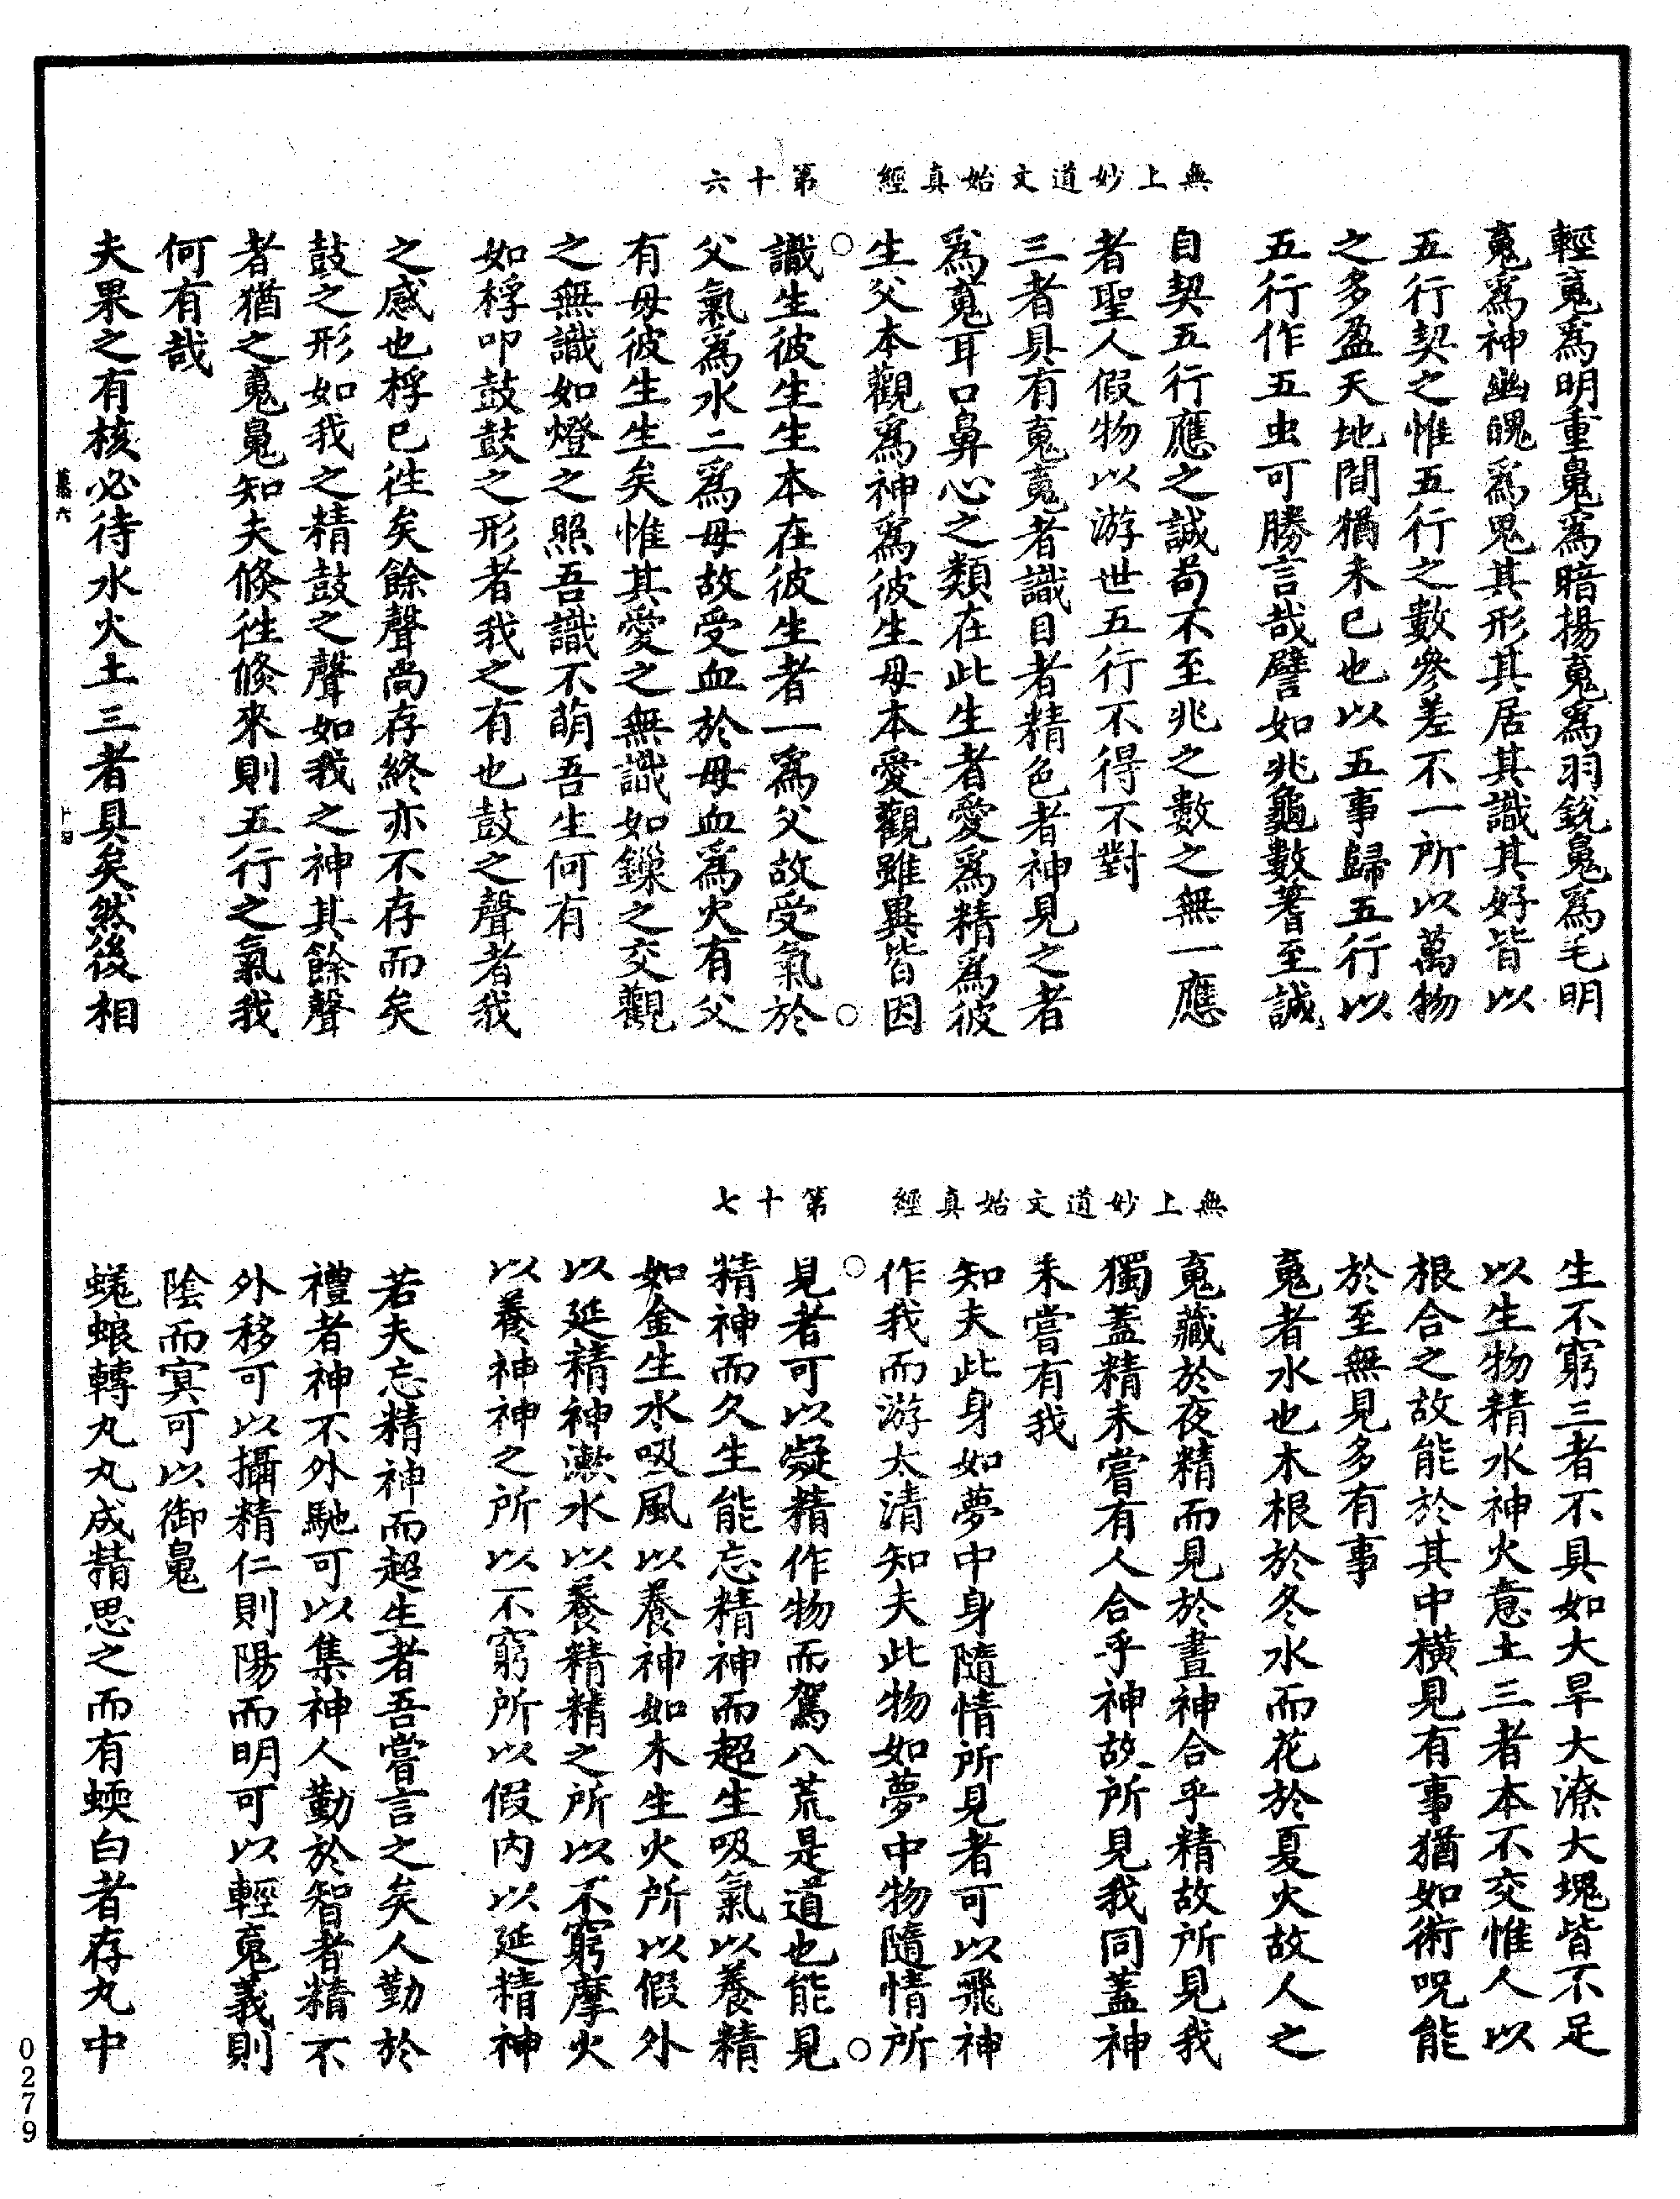 無上妙道文始真經　第十六
輕䰟爲明重䰟爲暗揚䰟爲羽鋭䰟爲毛明
䰟爲神幽魄爲鬼其形其居其識其好皆以
五行契之惟五行之數參差不一所以萬物
之多盈天地間猶未已也以五事歸五行以
五行作五虫可勝言哉譬如兆龜數蓍至誠
自契五行應之誠苟不至兆之數之無一應
者聖人假物以游世五行不得不對
三者具有䰟䰟者識目者精色者神見之者
爲䰟耳口鼻心之類在此生者愛爲精爲彼
生父本觀爲神爲彼生母本愛觀雖異皆因
識生彼生生本在彼生者一爲父故受氣於
父氣爲水二爲母故受血於母血爲火有父
有母彼生生矣惟其愛之無識如鏁之交觀
之無識如燈之照吾識不萌吾生何有
如桴叩鼓鼓之形者我之有也鼓之聲者我
之感也桴已徃矣餘聲尚存終亦不存而矣
鼓之形如我之精鼓之聲如我之神其餘聲
者猶之䰟魄知夫倏徃倏來則五行之氣我
何有哉
夫果之有核必待水火土三者具矣然後相
慕六
十四
無上妙道文始真經　第十七
生不窮三者不具如大旱大潦大塊皆不足
以生物精水神火意土三者本不交惟人以
根合之故能於其中橫見有事猶如術呪能
於至無見多有事
䰟者水也木根於冬水而花於夏火故人之
䰟藏於夜精而見於晝神合乎精故所見我
獨蓋精未嘗有人合乎神故所見我同蓋神
未嘗有我
知夫此身如夢中身隨情所見者可以飛神
作我而游太清知夫此物如夢中物隨情所
見者可以凝精作物而駕八荒是道也能見
精神而久生能忘精神而超生吸氣以養精
如金生水吸風以養神如木生火所以假外
以延精神漱水以養精精之所以不窮摩火
以養神神之所以不窮所以假内以延精神
若夫忘精神而超生者吾嘗言之矣人勤於
禮者神不外馳可以集神人勤於智者精不
外移可以攝精仁則陽而明可以輕䰟義則
陰而冥可以御魄
蜣蜋轉丸丸成精思之而有蝡白者存丸中
0279